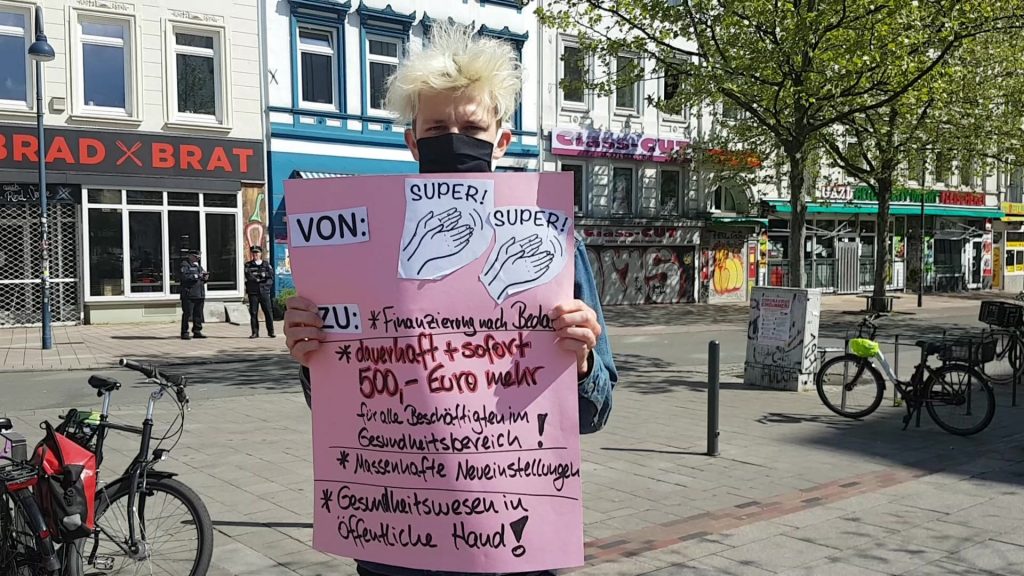 BRAD × BRAT
Classic CUT
SUPER!
SUPER!
VON:
ZU: * Finanzierung nach Bedar
* dauerhaft + sofort
500,- Euro mehr
für alle Beschäftigten im
Gesundheitsbereich!
* Massenhafte Neueinstellungen
* Gesundheitswesen in
Öffentliche Hand!